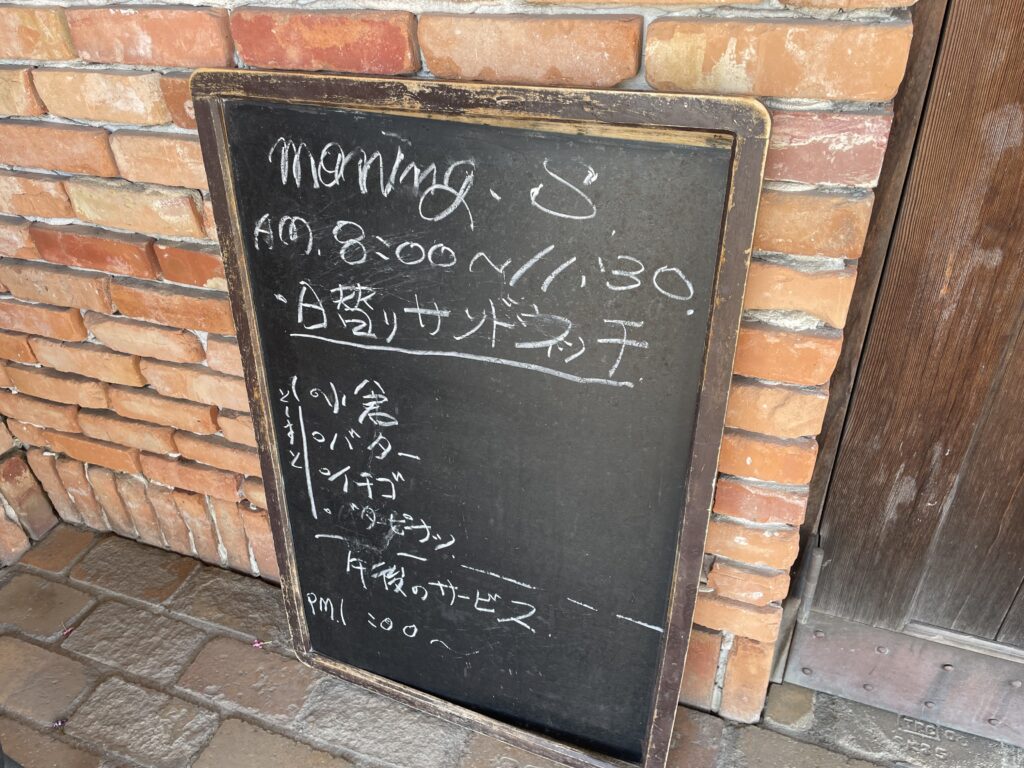 morning. S
AM. 8:00 ~ 11:30.
・日替りサンドウィッチ
とーすと
小倉
バター
イチゴ
ピーナッ
午後のサービス
PM. 1:00~